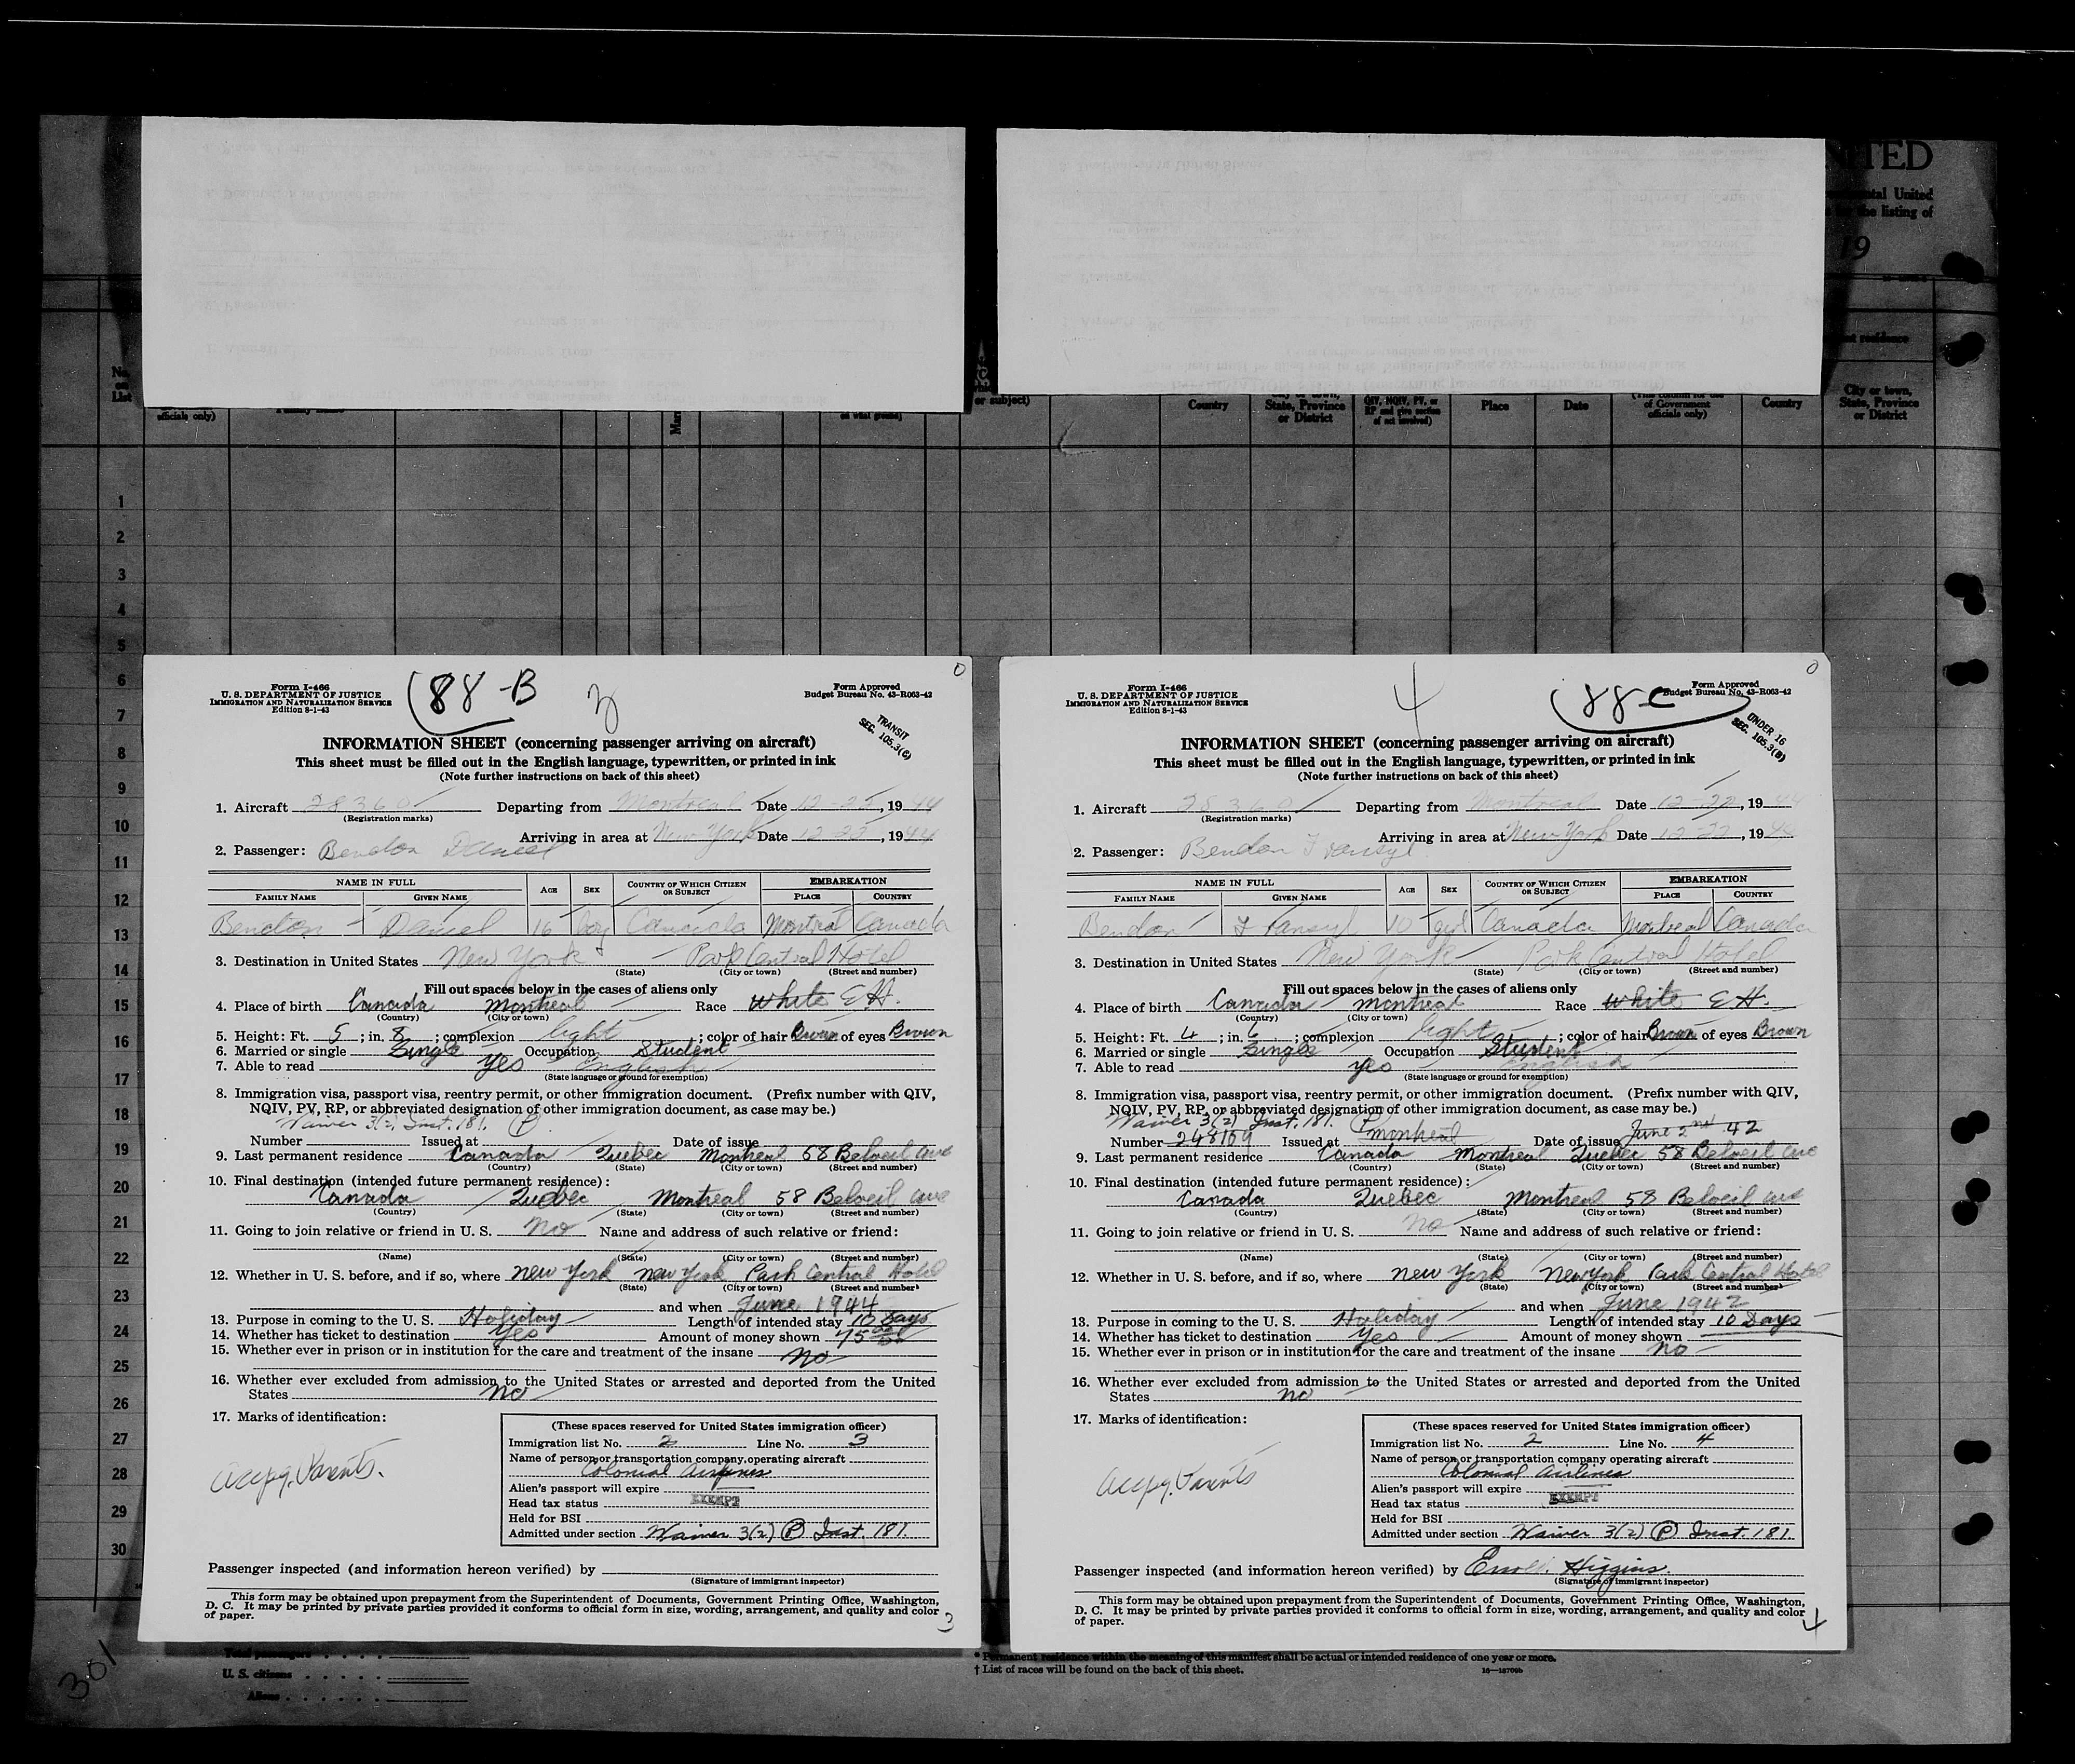 NITED
ntal United
the listing of
19
nt residence
No.
on
List
officials only)
or subject)
Country
City or town,
State, Province
or District
QIV, NQIV, PV, or
RP and give section
of act involved)
Place
Date
of Government
officials only)
Country
City or town,
State, Province
or District
1
2
3
4
5
6
7
8
9
10
11
12
13
14
15
16
17
18
19
20
21
22
23
24
25
26
27
28
29
30
Form I-466
U. S. DEPARTMENT OF JUSTICE
IMMIGRATION AND NATURALIZATION SERVICE
Edition 8-1-43
88-B
3
Form Approved
Budget Bureau No. 43-R063-42
TRANSIT
SEC. 105.3(C)
INFORMATION SHEET (concerning passenger arriving on aircraft)
This sheet must be filled out in the English language, typewritten, or printed in ink
(Note further instructions on back of this sheet)
1. Aircraft 28360 Departing from Montreal Date 12-22, 1944
(Registration marks)
Arriving in area at New York Date 12-22, 1944
2. Passenger: Bendon Daniel
NAME IN FULL AGE SEX COUNTRY OF WHICH CITIZEN OR SUBJECT EMBARKATION
FAMILY NAME GIVEN NAME PLACE COUNTRY
Bendon Daniel 16 boy Canada Montreal Canada
3. Destination in United States New York Park Central Hotel
(State) (City or town) (Street and number)
Fill out spaces below in the cases of aliens only
4. Place of birth Canada Montreal Race White E H.
(Country) (City or town)
5. Height: Ft. 5; in. 8; complexion light; color of hair Brown of eyes Brown
6. Married or single Single Occupation Student
7. Able to read Yes English
(State language or ground for exemption)
8. Immigration visa, passport visa, reentry permit, or other immigration document. (Prefix number with QIV,
NQIV, PV, RP, or abbreviated designation of other immigration document, as case may be.)
Waiver 3(2) Inst. 181. P
Number Issued at Date of issue
9. Last permanent residence Canada Quebec Montreal 58 Beloeil Ave
(Country) (State) (City or town) (Street and number)
10. Final destination (intended future permanent residence):
Canada Quebec Montreal 58 Beloeil Ave
(Country) (State) (City or town) (Street and number)
11. Going to join relative or friend in U. S. No Name and address of such relative or friend:
(Name) (State) (City or town) (Street and number)
12. Whether in U. S. before, and if so, where New York New York Park Central Hotel
(State) (City or town) (Street and number)
and when June 1944
13. Purpose in coming to the U. S. Holiday Length of intended stay 10 Days
14. Whether has ticket to destination Yes Amount of money shown 75
15. Whether ever in prison or in institution for the care and treatment of the insane No
16. Whether ever excluded from admission to the United States or arrested and deported from the United
States No
17. Marks of identification:
Accpg. Parents.
(These spaces reserved for United States immigration officer)
Immigration list No. 2 Line No. 3
Name of person or transportation company operating aircraft
Colonial Airlines
Alien's passport will expire
Head tax status EXEMPT
Held for BSI
Admitted under section Waiver 3(2) P Inst. 181.
Passenger inspected (and information hereon verified) by
(Signature of immigrant inspector)
This form may be obtained upon prepayment from the Superintendent of Documents, Government Printing Office, Washington,
D. C. It may be printed by private parties provided it conforms to official form in size, wording, arrangement, and quality and color
of paper.
3
Form I-466
U. S. DEPARTMENT OF JUSTICE
IMMIGRATION AND NATURALIZATION SERVICE
Edition 8-1-43
4
88-C
Form Approved
Budget Bureau No. 43-R063-42
UNDER 16
SEC. 105.3(B)
INFORMATION SHEET (concerning passenger arriving on aircraft)
This sheet must be filled out in the English language, typewritten, or printed in ink
(Note further instructions on back of this sheet)
1. Aircraft 28360 Departing from Montreal Date 12-22, 1944
(Registration marks)
Arriving in area at New York Date 12-22, 1944
2. Passenger: Bendon
NAME IN FULL AGE SEX COUNTRY OF WHICH CITIZEN OR SUBJECT EMBARKATION
FAMILY NAME GIVEN NAME PLACE COUNTRY
Bendon 10 girl Canada Montreal Canada
3. Destination in United States New York Park Central Hotel
(State) (City or town) (Street and number)
Fill out spaces below in the cases of aliens only
4. Place of birth Canada Montreal Race White E H.
(Country) (City or town)
5. Height: Ft. 4; in. 6; complexion light; color of hair Brown of eyes Brown
6. Married or single Single Occupation Student
7. Able to read Yes English
(State language or ground for exemption)
8. Immigration visa, passport visa, reentry permit, or other immigration document. (Prefix number with QIV,
NQIV, PV, RP, or abbreviated designation of other immigration document, as case may be.)
Waiver 3(2) Inst. 181. P
Number 248159 Issued at Montreal Date of issue June 2nd 42
9. Last permanent residence Canada Montreal Quebec 58 Beloeil Ave
(Country) (State) (City or town) (Street and number)
10. Final destination (intended future permanent residence):
Canada Quebec Montreal 58 Beloeil Ave
(Country) (State) (City or town) (Street and number)
11. Going to join relative or friend in U. S. No Name and address of such relative or friend:
(Name) (State) (City or town) (Street and number)
12. Whether in U. S. before, and if so, where New York New York Park Central Hotel
(State) (City or town) (Street and number)
and when June 1942
13. Purpose in coming to the U. S. Holiday Length of intended stay 10 Days
14. Whether has ticket to destination Yes Amount of money shown
15. Whether ever in prison or in institution for the care and treatment of the insane No
16. Whether ever excluded from admission to the United States or arrested and deported from the United
States No
17. Marks of identification:
Accpg. Parents
(These spaces reserved for United States immigration officer)
Immigration list No. 2 Line No. 4
Name of person or transportation company operating aircraft
Colonial Airlines
Alien's passport will expire
Head tax status EXEMPT
Held for BSI
Admitted under section Waiver 3(2) P Inst. 181.
Passenger inspected (and information hereon verified) by Higgins.
(Signature of immigrant inspector)
This form may be obtained upon prepayment from the Superintendent of Documents, Government Printing Office, Washington,
D. C. It may be printed by private parties provided it conforms to official form in size, wording, arrangement, and quality and color
of paper.
4
Total passengers
U. S. citizens
Aliens
301
* Permanent residence within the meaning of this manifest shall be actual or intended residence of one year or more.
† List of races will be found on the back of this sheet.